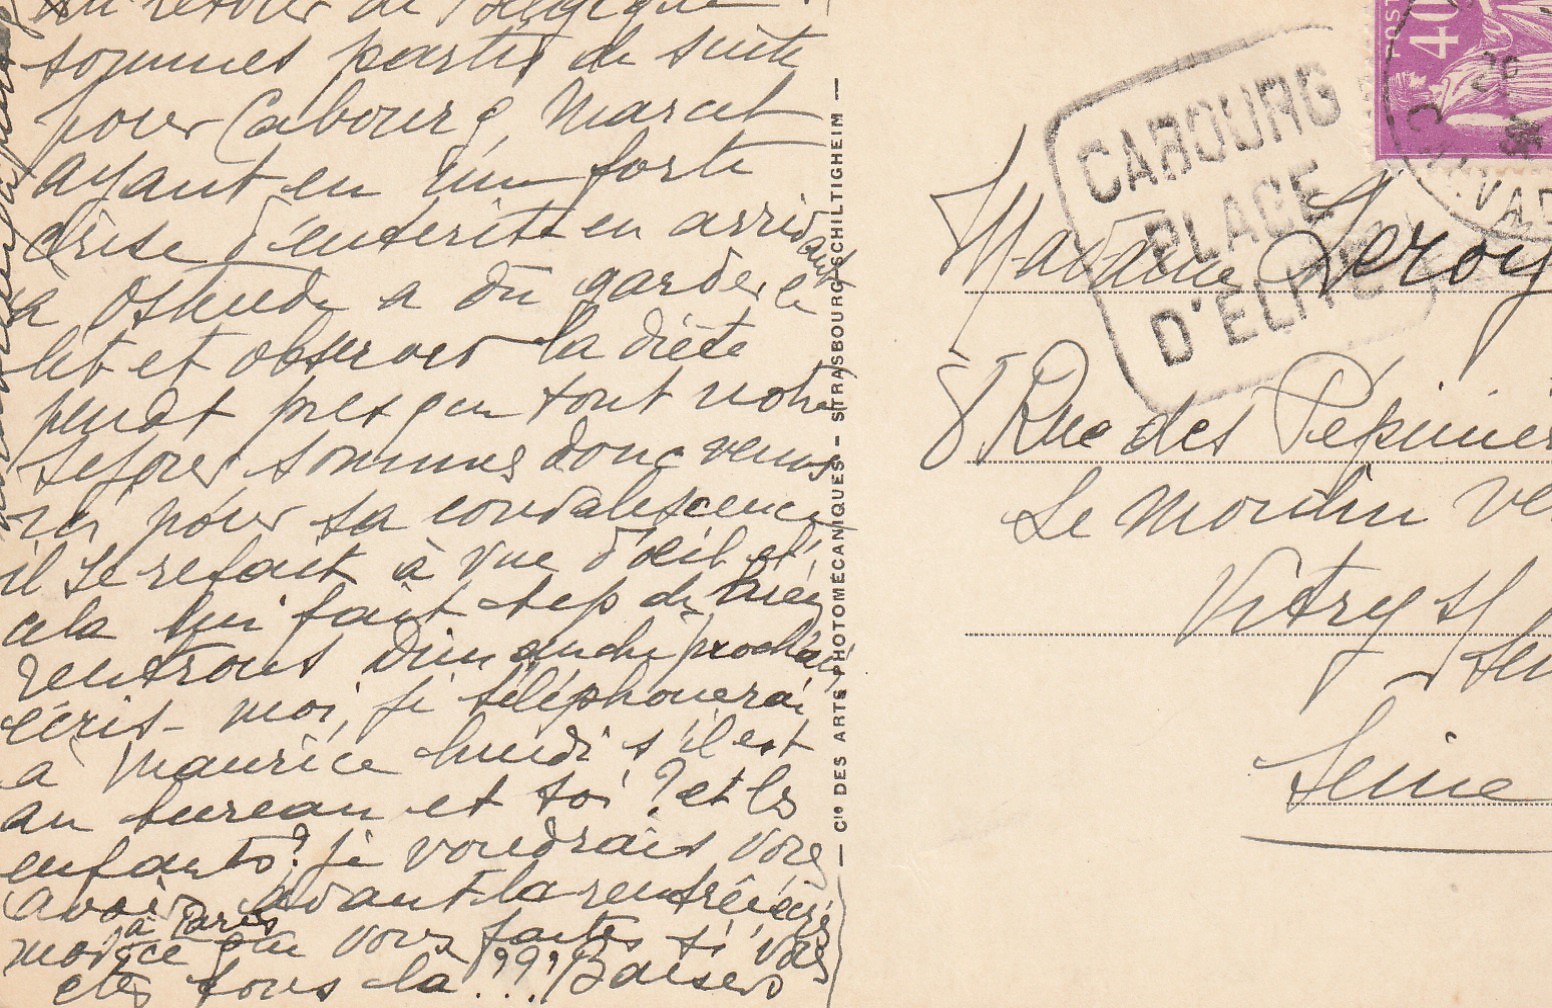 Au retour de Belgique
sommes partis de suite
pour Cabourg, Marcel
ayant eu une forte
crise d'entérite en arrivant
à Ostende a dû garder le
lit et observer la diète
pendt presque tout notre
séjour sommes donc venus
ici pour sa convalescence
il se refait à vue d'oeil et
cela lui fait bcp de bien
rentrons dimanche prochain
écris-moi, je téléphonerai
à Maurice lundi s'il est
au bureau et toi? et les
enfants? je voudrais vous
avoir à Paris avant la rentrée écris
moi ce que vous faites si vous
êtes tous là???! Baisers
Cie DES ARTS PHOTOMÉCANIQUES - STRASBOURG-SCHILTIGHEIM -
CABOURG
PLAGE
D'ELITE
POST
40
VAD
Madame Leroy
8 Rue des Pépinièr
Le Moulin Ve
Vitry s/
Sei
Seine